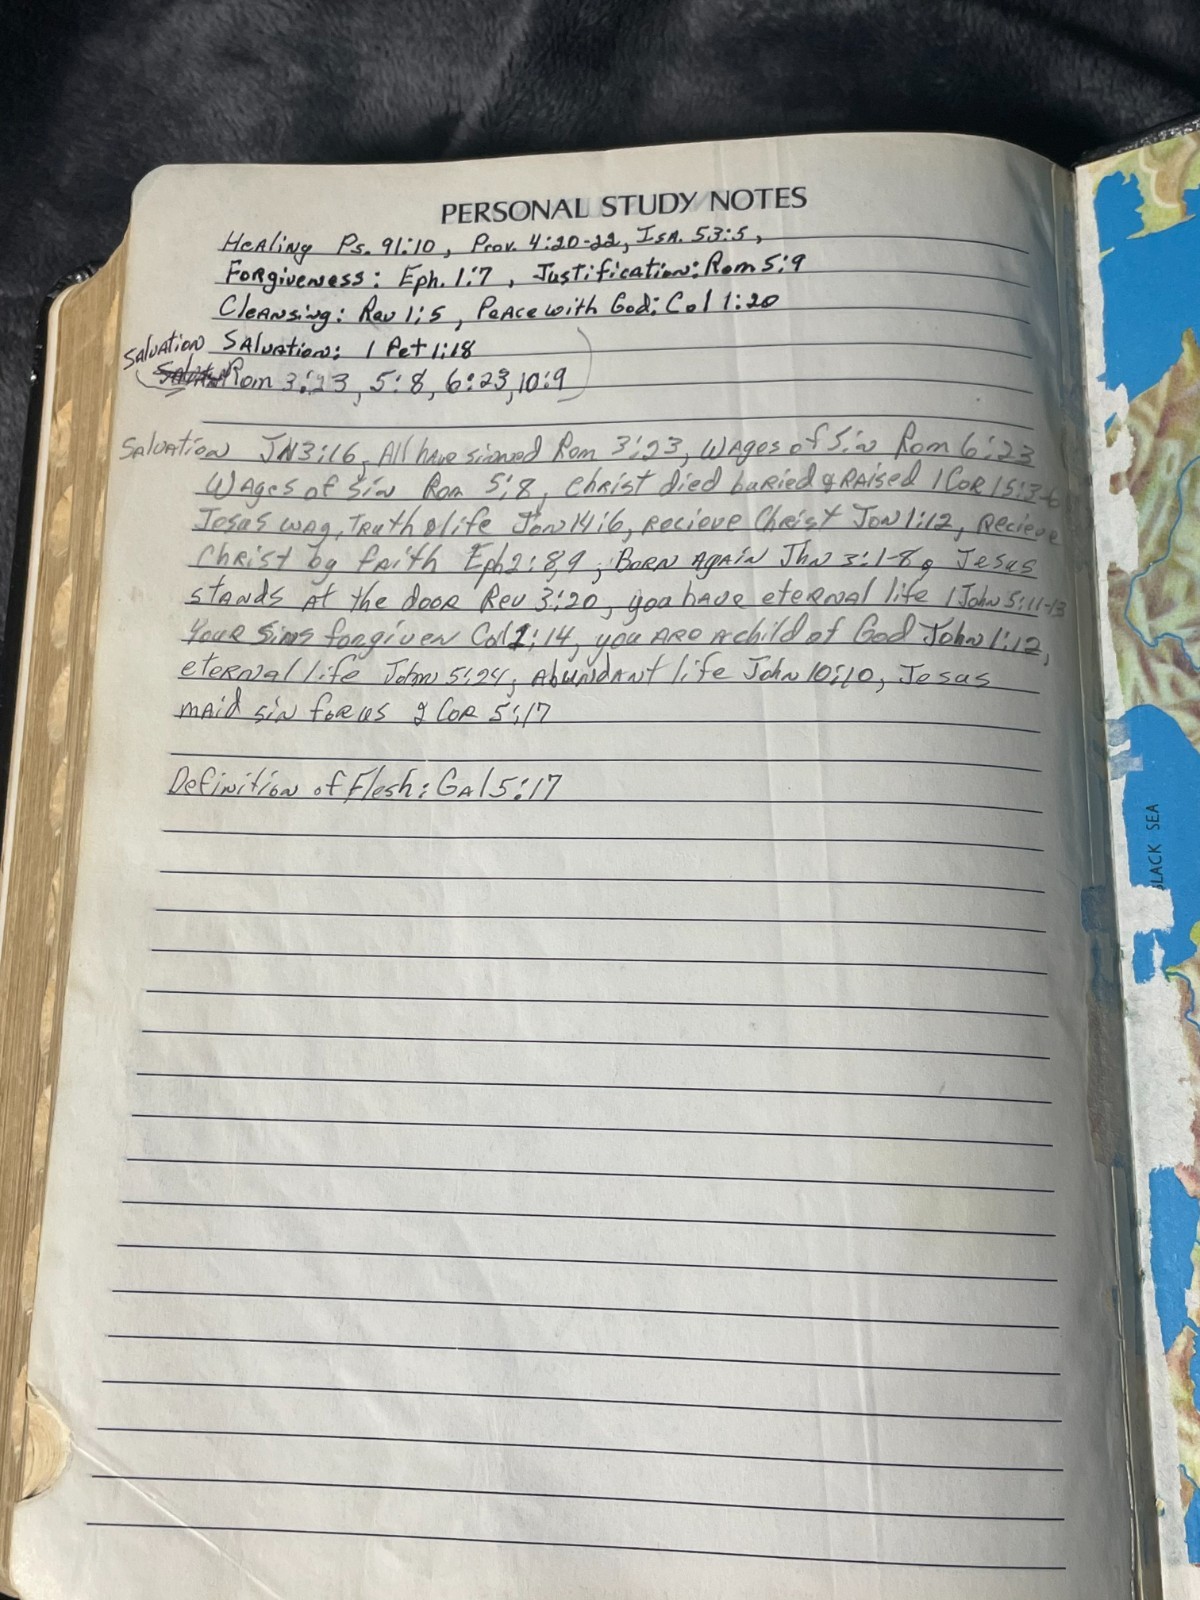 PERSONAL STUDY NOTES
Healing Ps. 91:10, Prov. 4:20-22, Isa. 53:5,
Forgiveness: Eph. 1:7, Justification: Rom 5:9
Cleansing: Rev 1:5, Peace with God: Col 1:20
Salvation Salvation: 1 Pet 1:18
Rom 3:23, 5:8, 6:23, 10:9
Salvation JN 3:16, All have sinned Rom 3:23, Wages of Sin Rom 6:23
Wages of Sin Rom 5:8, Christ died buried & Raised 1 Cor 15:3-6
Jesus way, Truth & life Jon 14:6, recieve Christ Jon 1:12, Recieve
Christ by faith Eph 2:8,9, Born Again Jhn 3:1-8, Jesus
stands at the door Rev 3:20, you have eternal life 1 John 5:11-13
Your Sins forgiven Col 1:14, you are a child of God John 1:12,
eternal life John 5:24, Abundant life John 10:10, Jesus
maid sin for us 2 Cor 5:17
Definition of Flesh: Gal 5:17
BLACK SEA